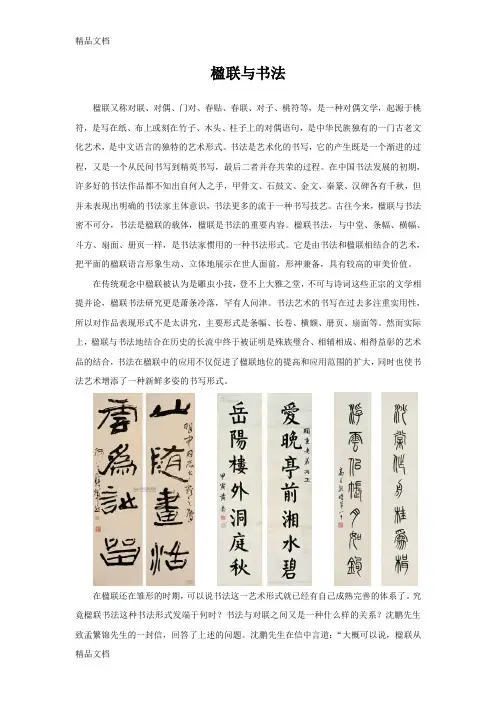 精品文档
楹联与书法
楹联又称对联、对偶、门对、春贴、春联、对子、桃符等，是一种对偶文学，起源于桃
符，是写在纸、布上或刻在竹子、木头、柱子上的对偶语句，是中华民族独有的一门古老文
化艺术，是中文语言的独特的艺术形式。书法是艺术化的书写，它的产生既是一个渐进的过
程，又是一个从民间书写到精英书写，最后二者并存共荣的过程。在中国书法发展的初期，
许多好的书法作品都不知出自何人之手，甲骨文、石鼓文、金文、秦篆、汉碑各有千秋，但
并未表现出明确的书法家主体意识，书法更多的流于一种书写技艺。古往今来，楹联与书法
密不可分，书法是楹联的载体，楹联是书法的重要内容。楹联书法，与中堂、条幅、横幅、
斗方、扇面、册页一样，是书法家惯用的一种书法形式。它是由书法和楹联相结合的艺术，
把平面的楹联语言形象生动、立体地展示在世人面前，形神兼备，具有较高的审美价值。
在传统观念中楹联被认为是雕虫小技，登不上大雅之堂，不可与诗词这些正宗的文学相
提并论，楹联书法研究更是萧条冷落，罕有人问津。书法艺术的书写在过去多注重实用性，
所以对作品表现形式不是太讲究，主要形式是条幅、长卷、横额、册页、扇面等。然而实际
上，楹联与书法地结合在历史的长流中终于被证明是殊族璧合、相辅相成、相得益彰的艺术
品的结合，书法在楹联中的应用不仅促进了楹联地位的提高和应用范围的扩大，同时也使书
法艺术增添了一种新鲜多姿的书写形式。
山随画活
云为诗留
爱晚亭前湘水碧
岳阳楼外洞庭秋
在楹联还在雏形的时期，可以说书法这一艺术形式就已经有自己成熟完善的体系了。究
竟楹联书法这种书法形式发端于何时？书法与对联之间又是一种什么样的关系？沈鹏先生
致孟繁锦先生的一封信，回答了上述的问题。沈鹏先生在信中言道：“大概可以说，楹联从
精品文档